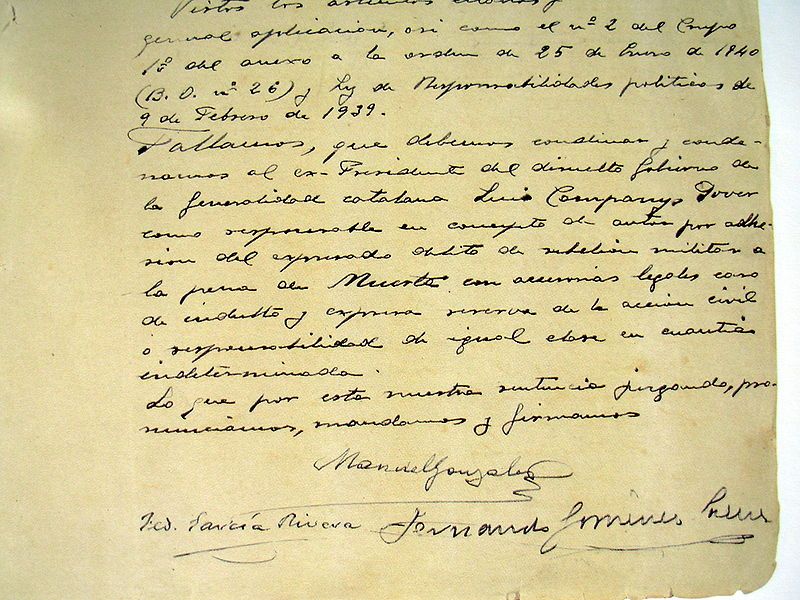 Vistos los artículos citados y
general aplicacion, asi como el nº 2 del Grupo
1º del anexo a la orden de 25 de Enero de 1940
(B. O. nº 26) y Ley de Responsabilidades politicas de
9 de Febrero de 1939.
Fallamos, que debemos condenar y conde-
namos al ex-Presidente del disuelto Gobierno de
la Generalidad catalana Luis Companys Jover
como responsable en concepto de autor por adhe-
sion del expresado delito de rebelion militar a
la pena de Muerte con accesorias legales caso
de indulto y expresa reserva de la accion civil
o responsabilidad de igual clase en cuantia
indeterminada.
Lo que por esta nuestra sentencia juzgando, pro-
nunciamos, mandamos y firmamos
Manuel Gonzalez
Fed. García Rivera Fernando Gimenez